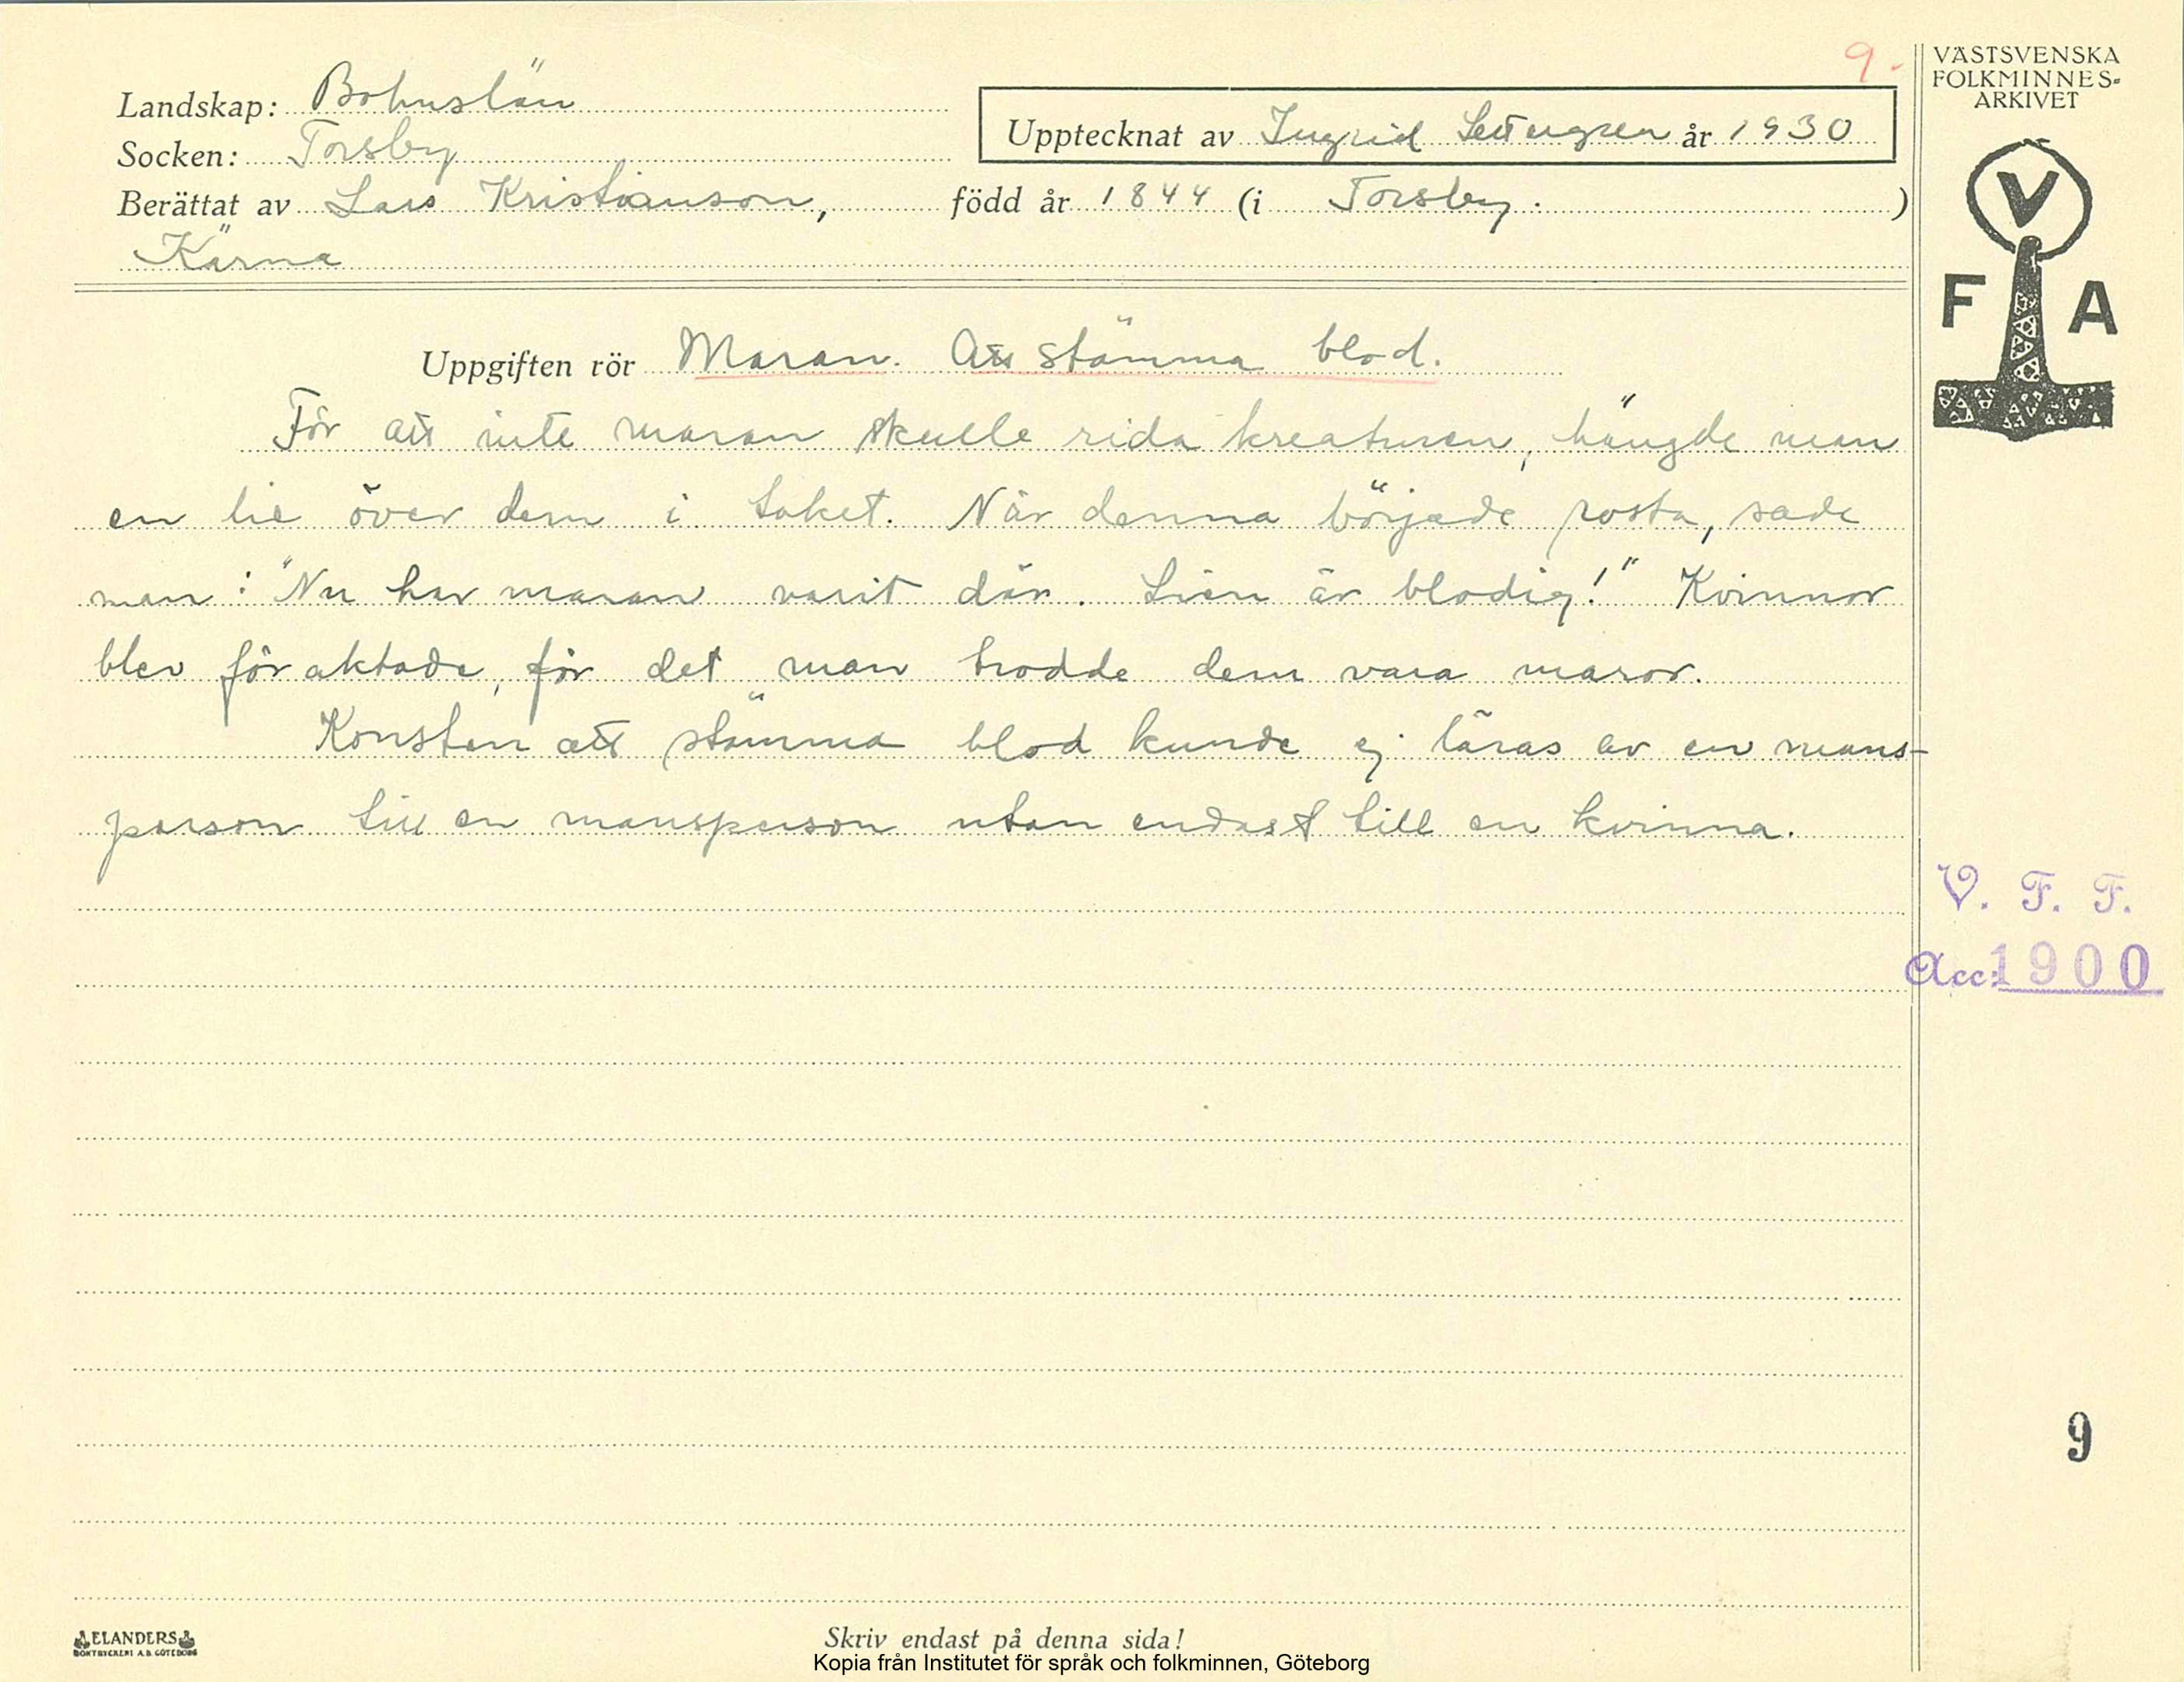 9.
Landskap: Bohuslän
Socken: Torsby
Upptecknat av Ingrid år 1930
Berättat av Lars Kristianson, född år 1844 (i Torsby.)
Kärna
VÄSTSVENSKA
FOLKMINNES-
ARKIVET
V
F A
Uppgiften rör Maran. Att stämma blod.
För att inte maran skulle rida kreaturen, hängde man
en lie över dem i taket. När denna började rosta, sade
man: "Nu har maran varit där. Lien är blodig!" Kvinnor
blev föraktade, för det man trodde dem vara maror.
Konsten att stämma blod kunde ej läras av en mans-
person till en mansperson utan endast till en kvinna.
V. F. F.
Acc: 1900
9
ELANDERS
BOKTRYCKERI A.B. GÖTEBORG
Skriv endast på denna sida!
Kopia från Institutet för språk och folkminnen, Göteborg